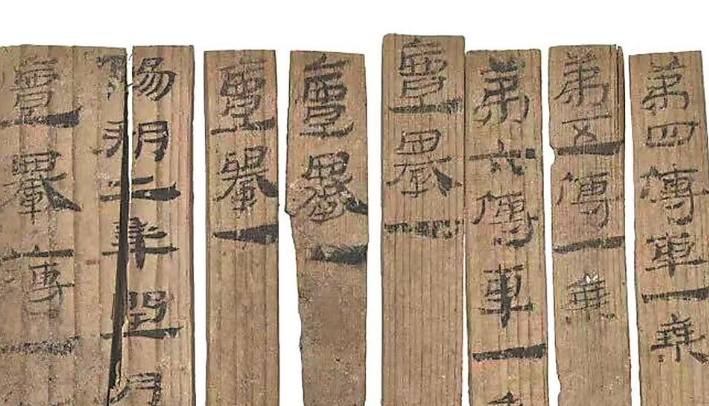 第四傳車一乘
第五傳一乘
第六傳車一
亶轝一
亶轝一
亶轝一
陽朔二年閏月
亶轝傳一